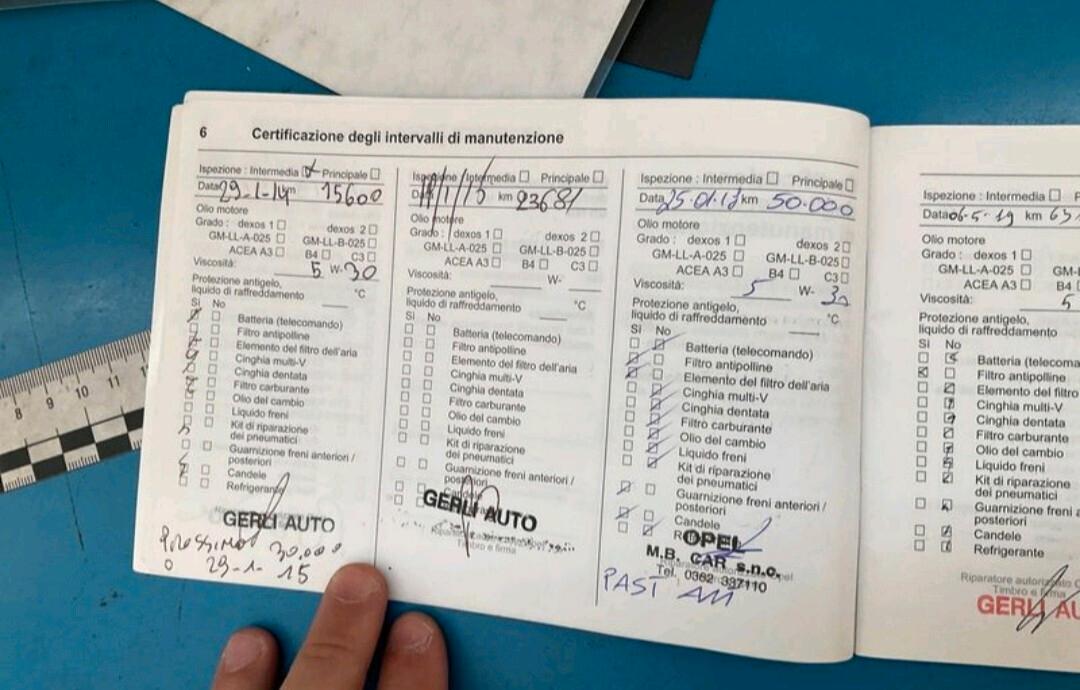 6 Certificazione degli intervalli di manutenzione
Ispezione : Intermedia Principale
Data 29-1-14 km 15600
Olio motore
Grado : dexos 1 dexos 2
GM-LL-A-025 GM-LL-B-025
ACEA A3 B4 C3
Viscosità: 5 W- 30
Protezione antigelo,
liquido di raffreddamento °C
Sì No
Batteria (telecomando)
Filtro antipolline
Elemento del filtro dell'aria
Cinghia multi-V
Cinghia dentata
Filtro carburante
Olio del cambio
Liquido freni
Kit di riparazione
dei pneumatici
Guarnizione freni anteriori /
posteriori
Candele
Refrigerante
GERLI AUTO
Prossimo 30.000
o 29-1-15
Ispezione : Intermedia Principale
km 23681
Olio motore
Grado : dexos 1 dexos 2
GM-LL-A-025 GM-LL-B-025
ACEA A3 B4 C3
Viscosità: W-
Protezione antigelo,
liquido di raffreddamento °C
Sì No
Batteria (telecomando)
Filtro antipolline
Elemento del filtro dell'aria
Cinghia multi-V
Cinghia dentata
Filtro carburante
Olio del cambio
Liquido freni
Kit di riparazione
dei pneumatici
Guarnizione freni anteriori /
posteriori
GERLI AUTO
Timbro e firma
Ispezione : Intermedia Principale
Data 25.01.17 km 50.000
Olio motore
Grado : dexos 1 dexos 2
GM-LL-A-025 GM-LL-B-025
ACEA A3 B4 C3
Viscosità: 5 W- 30
Protezione antigelo,
liquido di raffreddamento °C
Sì No
Batteria (telecomando)
Filtro antipolline
Elemento del filtro dell'aria
Cinghia multi-V
Cinghia dentata
Filtro carburante
Olio del cambio
Liquido freni
Kit di riparazione
dei pneumatici
Guarnizione freni anteriori /
posteriori
Candele
OPEL
M.B. CAR s.n.c.
Tel. 0362 337110
PAST AM
Ispezione : Intermedia
Data 06-5-19 km
Olio motore
Grado : dexos 1
GM-LL-A-025
ACEA A3 B4
Viscosità: 5
Protezione antigelo,
liquido di raffreddamento
Sì No
Batteria (telecoma
Filtro antipolline
Elemento del filtro
Cinghia multi-V
Cinghia dentata
Filtro carburante
Olio del cambio
Liquido freni
Kit di riparazione
dei pneumatici
Guarnizione freni a
posteriori
Candele
Refrigerante
Riparatore autorizzato
Timbro e firma
GERLI AU
8 9 10 11